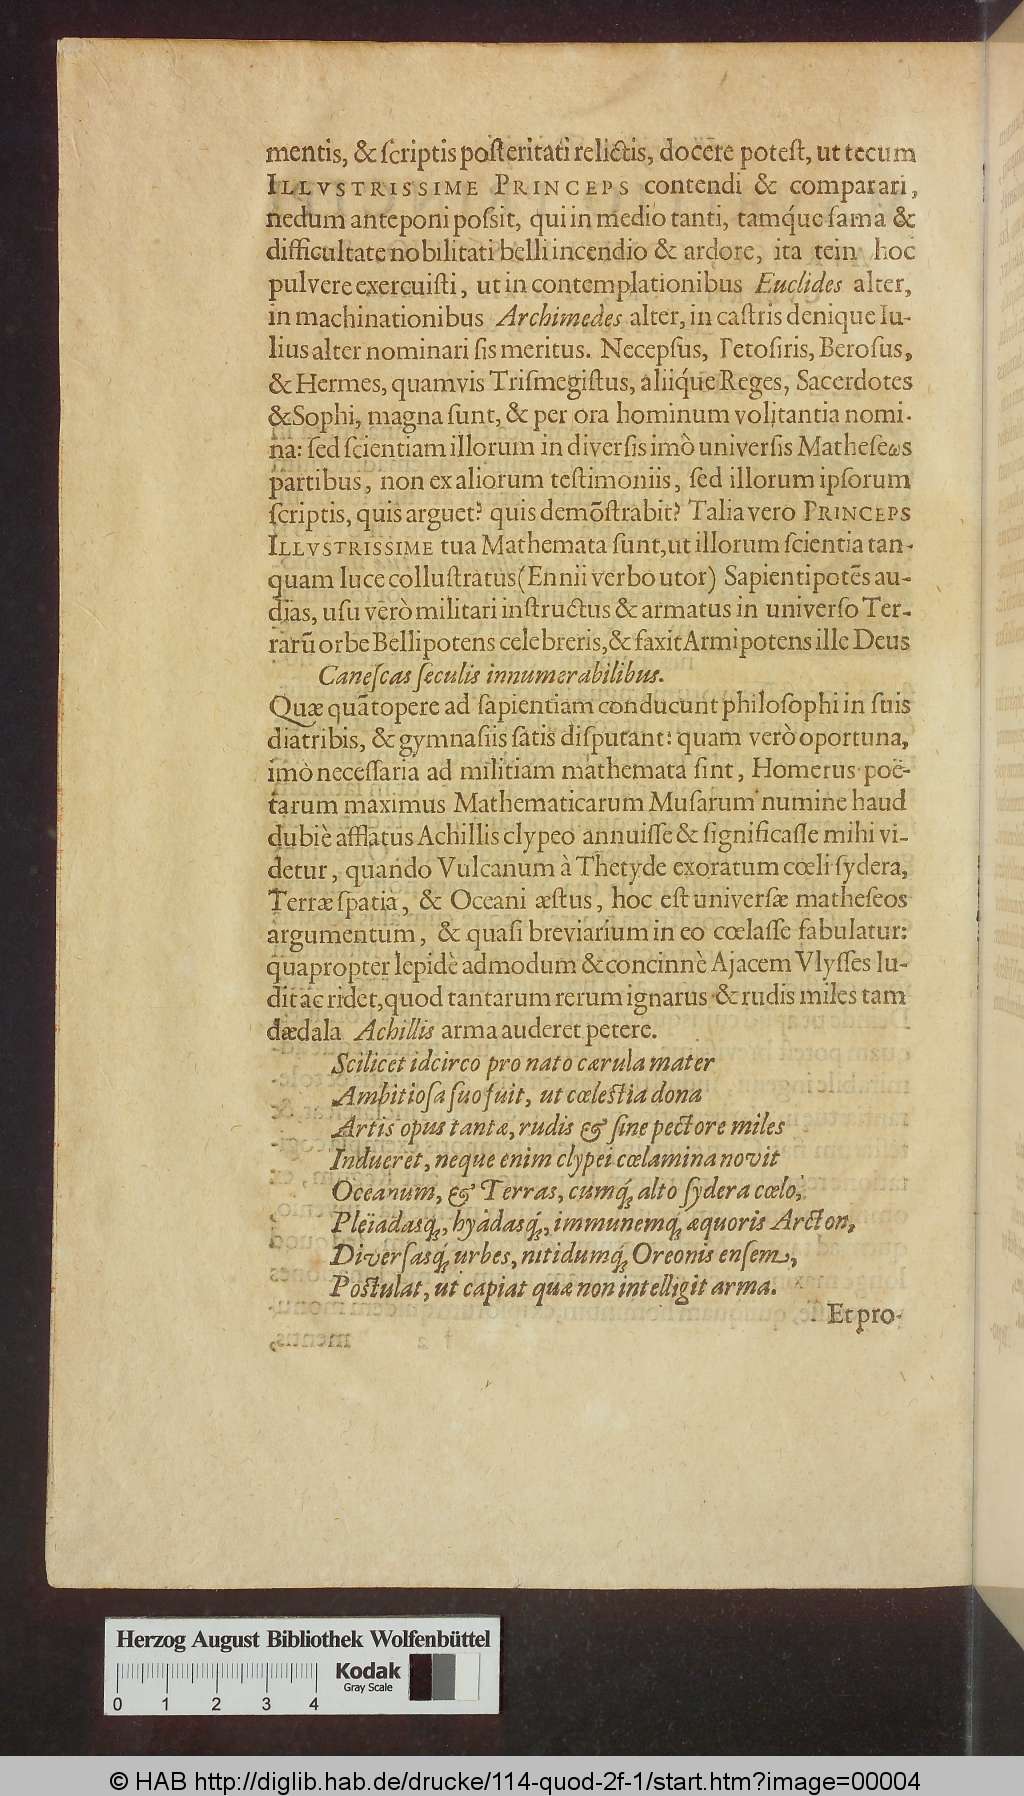 mentis, & ſcriptis poſteritati relictis, docere poteſt, ut tecum
ILLVSTRISSIME PRINCEPS contendi & comparari,
nedum anteponi poſsit, qui in medio tanti, tamq́ue fama &
difficultate nobilitati belli incendio & ardore, ita te in hoc
pulvere exercuiſti, ut in contemplationibus Euclides alter,
in machinationibus Archimedes alter, in caſtris denique Iu-
lius alter nominari ſis meritus. Necepſus, Petoſiris, Beroſus,
& Hermes, quamvis Triſmegiſtus, aliiq́ue Reges, Sacerdotes
& Sophi, magna ſunt, & per ora hominum volitantia nomi-
na: ſed ſcientiam illorum in diverſis imò univerſis Matheſeωs
partibus, non ex aliorum teſtimoniis, ſed illorum ipſorum
ſcriptis, quis arguet? quis demõſtrabit? Talia vero PRINCEPS
ILLVSTRISSIME tua Mathemata ſunt, ut illorum ſcientia tan-
quam luce colluſtratus (Ennii verbo utor) Sapientipotẽs au-
dias, uſu verò militari inſtructus & armatus in univerſo Ter-
rarũ orbe Bellipotens celebreris, & faxit Armipotens ille Deus
Caneſcas ſeculis innumerabilibus.
Quæ quãtopere ad ſapientiam conducunt philoſophi in ſuis
diatribis, & gymnaſiis ſatis diſputant: quam verò oportuna,
imò neceſſaria ad militiam mathemata ſint, Homerus poë-
tarum maximus Mathematicarum Muſarum numine haud
dubiè afflatus Achillis clypeo annuiſſe & ſignificaſſe mihi vi-
detur, quando Vulcanum à Thetyde exoratum cœli ſydera,
Terræ ſpatia, & Oceani æſtus, hoc eſt univerſæ matheſeos
argumentum, & quaſi breviarium in eo cœlaſſe fabulatur:
quapropter lepidè admodum & concinnè Ajacem Vlyſſes lu-
dit ac ridet, quod tantarum rerum ignarus & rudis miles tam
dædala Achillis arma auderet petere.
Scilicet idcirco pro nato cærula mater
Ambitioſa ſuo fuit, ut cœleſtia dona
Artis opus tantæ, rudis & ſine pectore miles
Indueret, neque enim clypei cœlamina novit
Oceanum, & Terras, cumq́; alto ſydera cœlo,
Pleïadasq́;, hyadasq́;, immunemq́; æquoris Arcton,
Diverſasq́; urbes, nitidumq́; Oreonis enſem,
Poſtulat, ut capiat quæ non intelligit arma.
Et pro-
mentis,
† 2
Herzog August Bibliothek Wolfenbüttel
0 1 2 3 4
Kodak
Gray Scale
© HAB http://diglib.hab.de/drucke/114-quod-2f-1/start.htm?image=00004